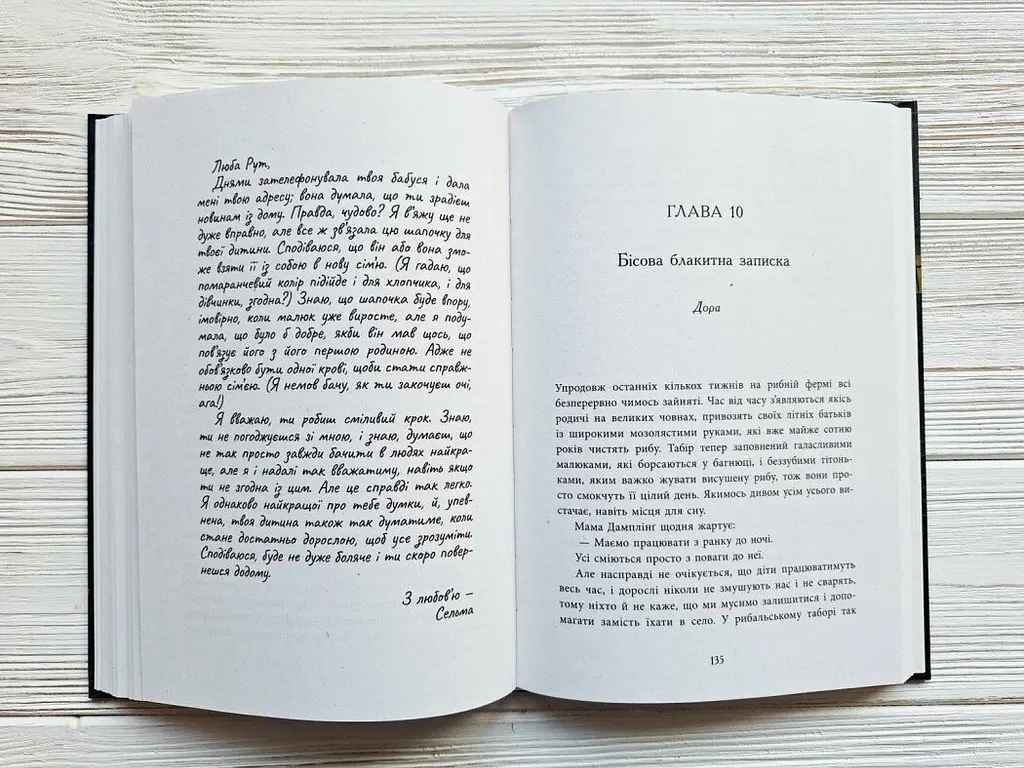 Люба Рут,
Днями зателефонувала твоя бабуся і дала
мені твою адресу; вона думала, що ти зрадієш
новинам із дому. Правда, чудово? Я в'яжу ще не
дуже вправно, але все ж зв'язала цю шапочку для
твоєї дитини. Сподіваюся, що він або вона змо-
же взяти її із собою в нову сім'ю. (Я гадаю, що
помаранчевий колір підійде і для хлопчика, і для
дівчинки, згодна?) Знаю, що шапочка буде впору,
імовірно, коли малюк уже виросте, але я поду-
мала, що було б добре, якби він мав щось, що
пов'язує його з його першою родиною. Адже не
обов'язково бути одної крові, щоби стати справж-
ньою сім'єю. (Я немов бачу, як ти закочуєш очі,
ага!)
Я вважаю, ти робиш сміливий крок. Знаю,
ти не погоджуєшся зі мною, і знаю, думаєш, що
не так просто завжди бачити в людях найкра-
ще, але я і надалі так вважатиму, навіть якщо
ти не згодна із цим. Але це справді так легко.
Я однаково найкращої про тебе думки, й, упев-
нена, твоя дитина також так думатиме, коли
стане достатньо дорослою, щоб усе зрозуміти.
Сподіваюся, буде не дуже боляче і ти скоро повер-
нешся додому.
З любов'ю —
Сельма
ГЛАВА 10
Бісова блакитна записка
Дора
Упродовж останніх кількох тижнів на рибній фермі всі
безперервно чимось зайняті. Час від часу з'являються якісь
родичі на великих човнах, привозять своїх літніх батьків
із широкими мозолястими руками, які вже майже сотню
років чистять рибу. Табір тепер заповнений галасливими
малюками, які борсаються у багнюці, і беззубими тітонь-
ками, яким важко жувати висушену рибу, тож вони про-
сто смокчуть її цілий день. Якимось дивом усім усього ви-
стачає, навіть місця для сну.
Мама Дамплінг щодня жартує:
— Маємо працювати з ранку до ночі.
Усі сміються просто з поваги до неї.
Але насправді не очікується, що діти працюватимуть
весь час, і дорослі ніколи не змушують нас і не сварять,
тому ніхто й не каже, що ми мусимо залишитися і допо-
магати замість їхати в село. У рибальському таборі так
135